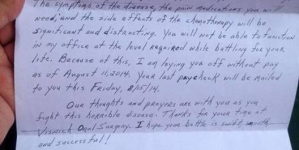 The symptoms of the disease, the pain medications you will
need, and the side effects of the chemotherapy will be
significant and distracting. You will not be able to function
in my office at the level required while battling for your
life. Because of this, I am laying you off without pay
as of August 11, 2014. Your last paycheck will be mailed
to you this Friday, 8/15/14.
Our thoughts and prayers are with you as you
fight this horrible disease. Thanks for your time at
Visnick Oral Surgery. I hope your battle is swift
and successful!